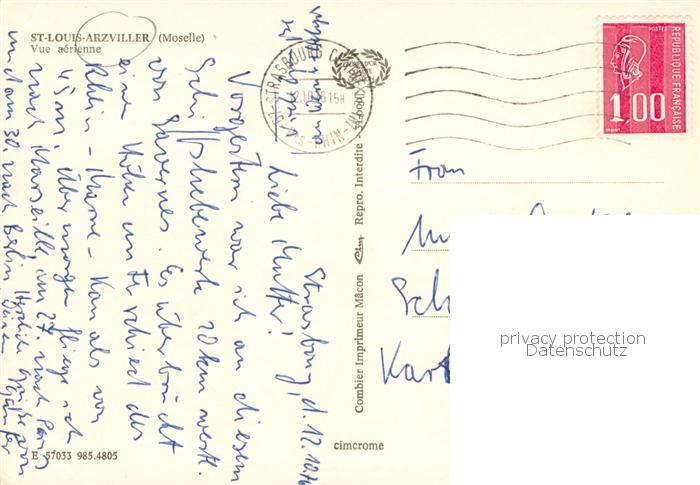 ST-LOUIS-ARZVILLER (Moselle)
Vue aérienne
Strasbourg, d. 12.10.76
Liebe Mutter!
Vorgestern war ich an diesem
Schiffshebewerk 20 km westl.
von Savernes. Es überbrückt
einen Höhenunterschied des
Rhein-Marne-Kanals von
45 m. Übermorgen fliege ich
nach Marseille, am 27. nach Paris
und am 30. nach Berlin. Herzliche Grüße von
Combier Imprimeur Mâcon Repro. Interdite
STRASBOURG
BAS-RHIN
15H
POSTES
REPUBLIQUE FRANÇAISE
1,00
Frau
privacy protection
Datenschutz
E 57033 985.4805
cimcrome